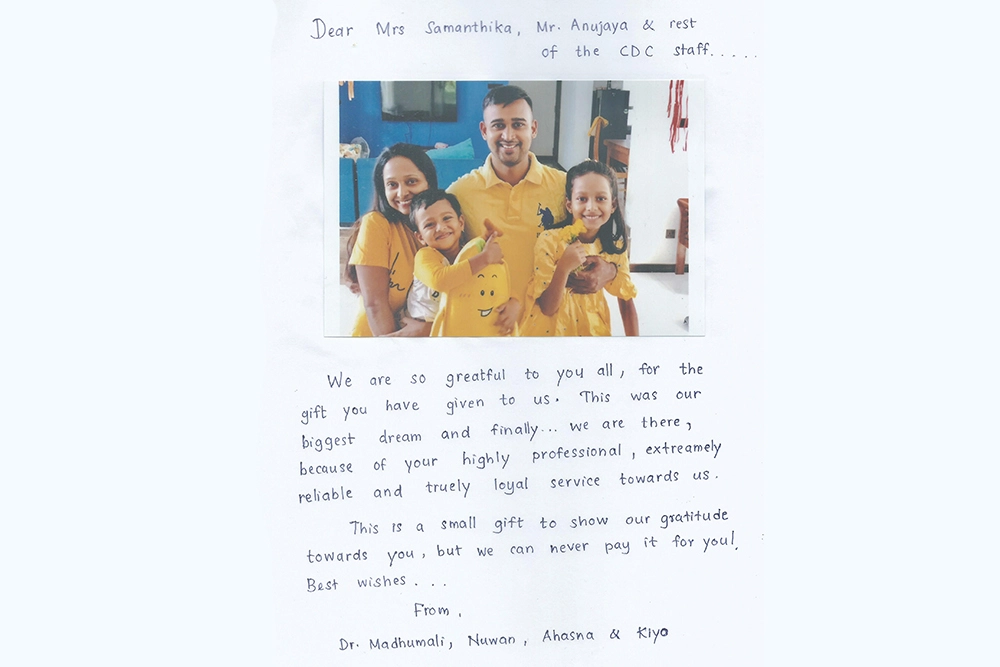 Dear Mrs Samanthika, Mr. Anujaya & rest
of the CDC staff.....
We are so greatful to you all, for the
gift you have given to us. This was our
biggest dream and finally... we are there,
because of your highly professional, extreamely
reliable and truely loyal service towards us.
This is a small gift to show our gratitude
towards you, but we can never pay it for you!.
Best wishes...
From,
Dr. Madhumali, Nuwan, Ahasna & Kiyo